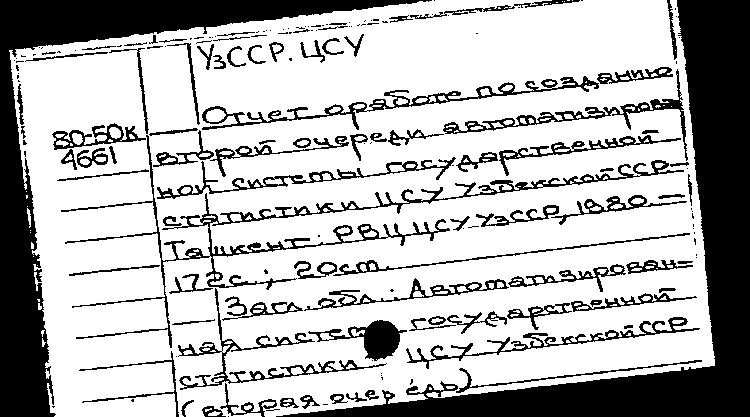 УзССР. ЦСУ
80-50к
4661
Отчет о работе по созданию
второй очереди автоматизирован-
ной системы государственной
статистики ЦСУ Узбекской ССР.—
Ташкент: РВЦ ЦСУ УзССР, 1980.—
172с.; 20см.
Загл. обл.: Автоматизирован-
ная система государственной
статистики ЦСУ Узбекской ССР
(вторая очередь)